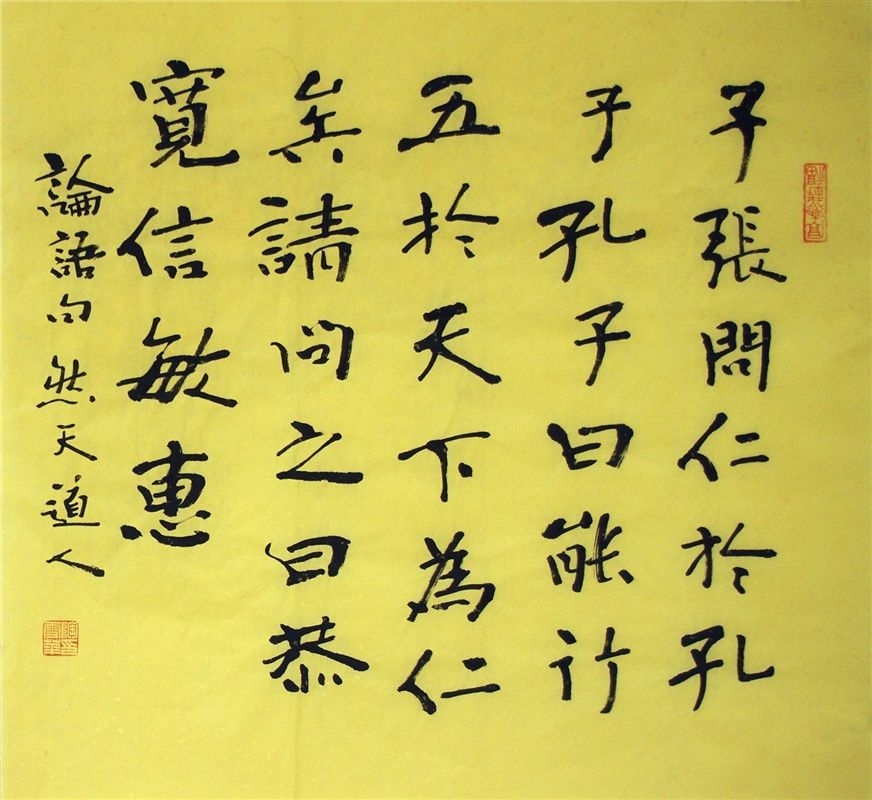 子張問仁於孔
子孔子曰能行
五於天下為仁
矣請問之曰恭
寬信敏惠
論語句然天道人